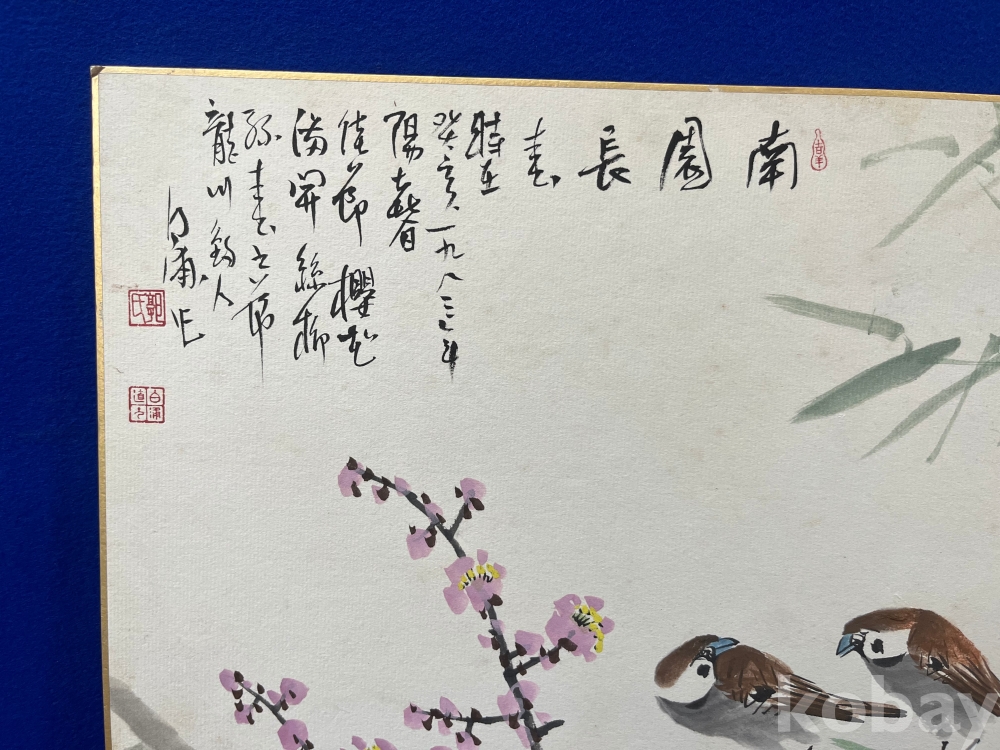 南園長春
時在
癸亥一九八三年
陽春
佳節 櫻花
滿開 絲柳
綠春之節
龍川釣人
白浦作
郭氏
白浦
kobay